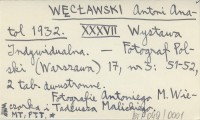 WĘCŁAWSKI Antoni Ana-
tol 1932. XXXVII Wystawa
Indywidualna. — Fotograf Pol-
ski (Warszawa) 17, nr 3: 51-52,
2 tab. dwustronne.
Fotografie Antoniego M. Wie-
czorka i Tadeusza Malickiego.
MT, PTT. *